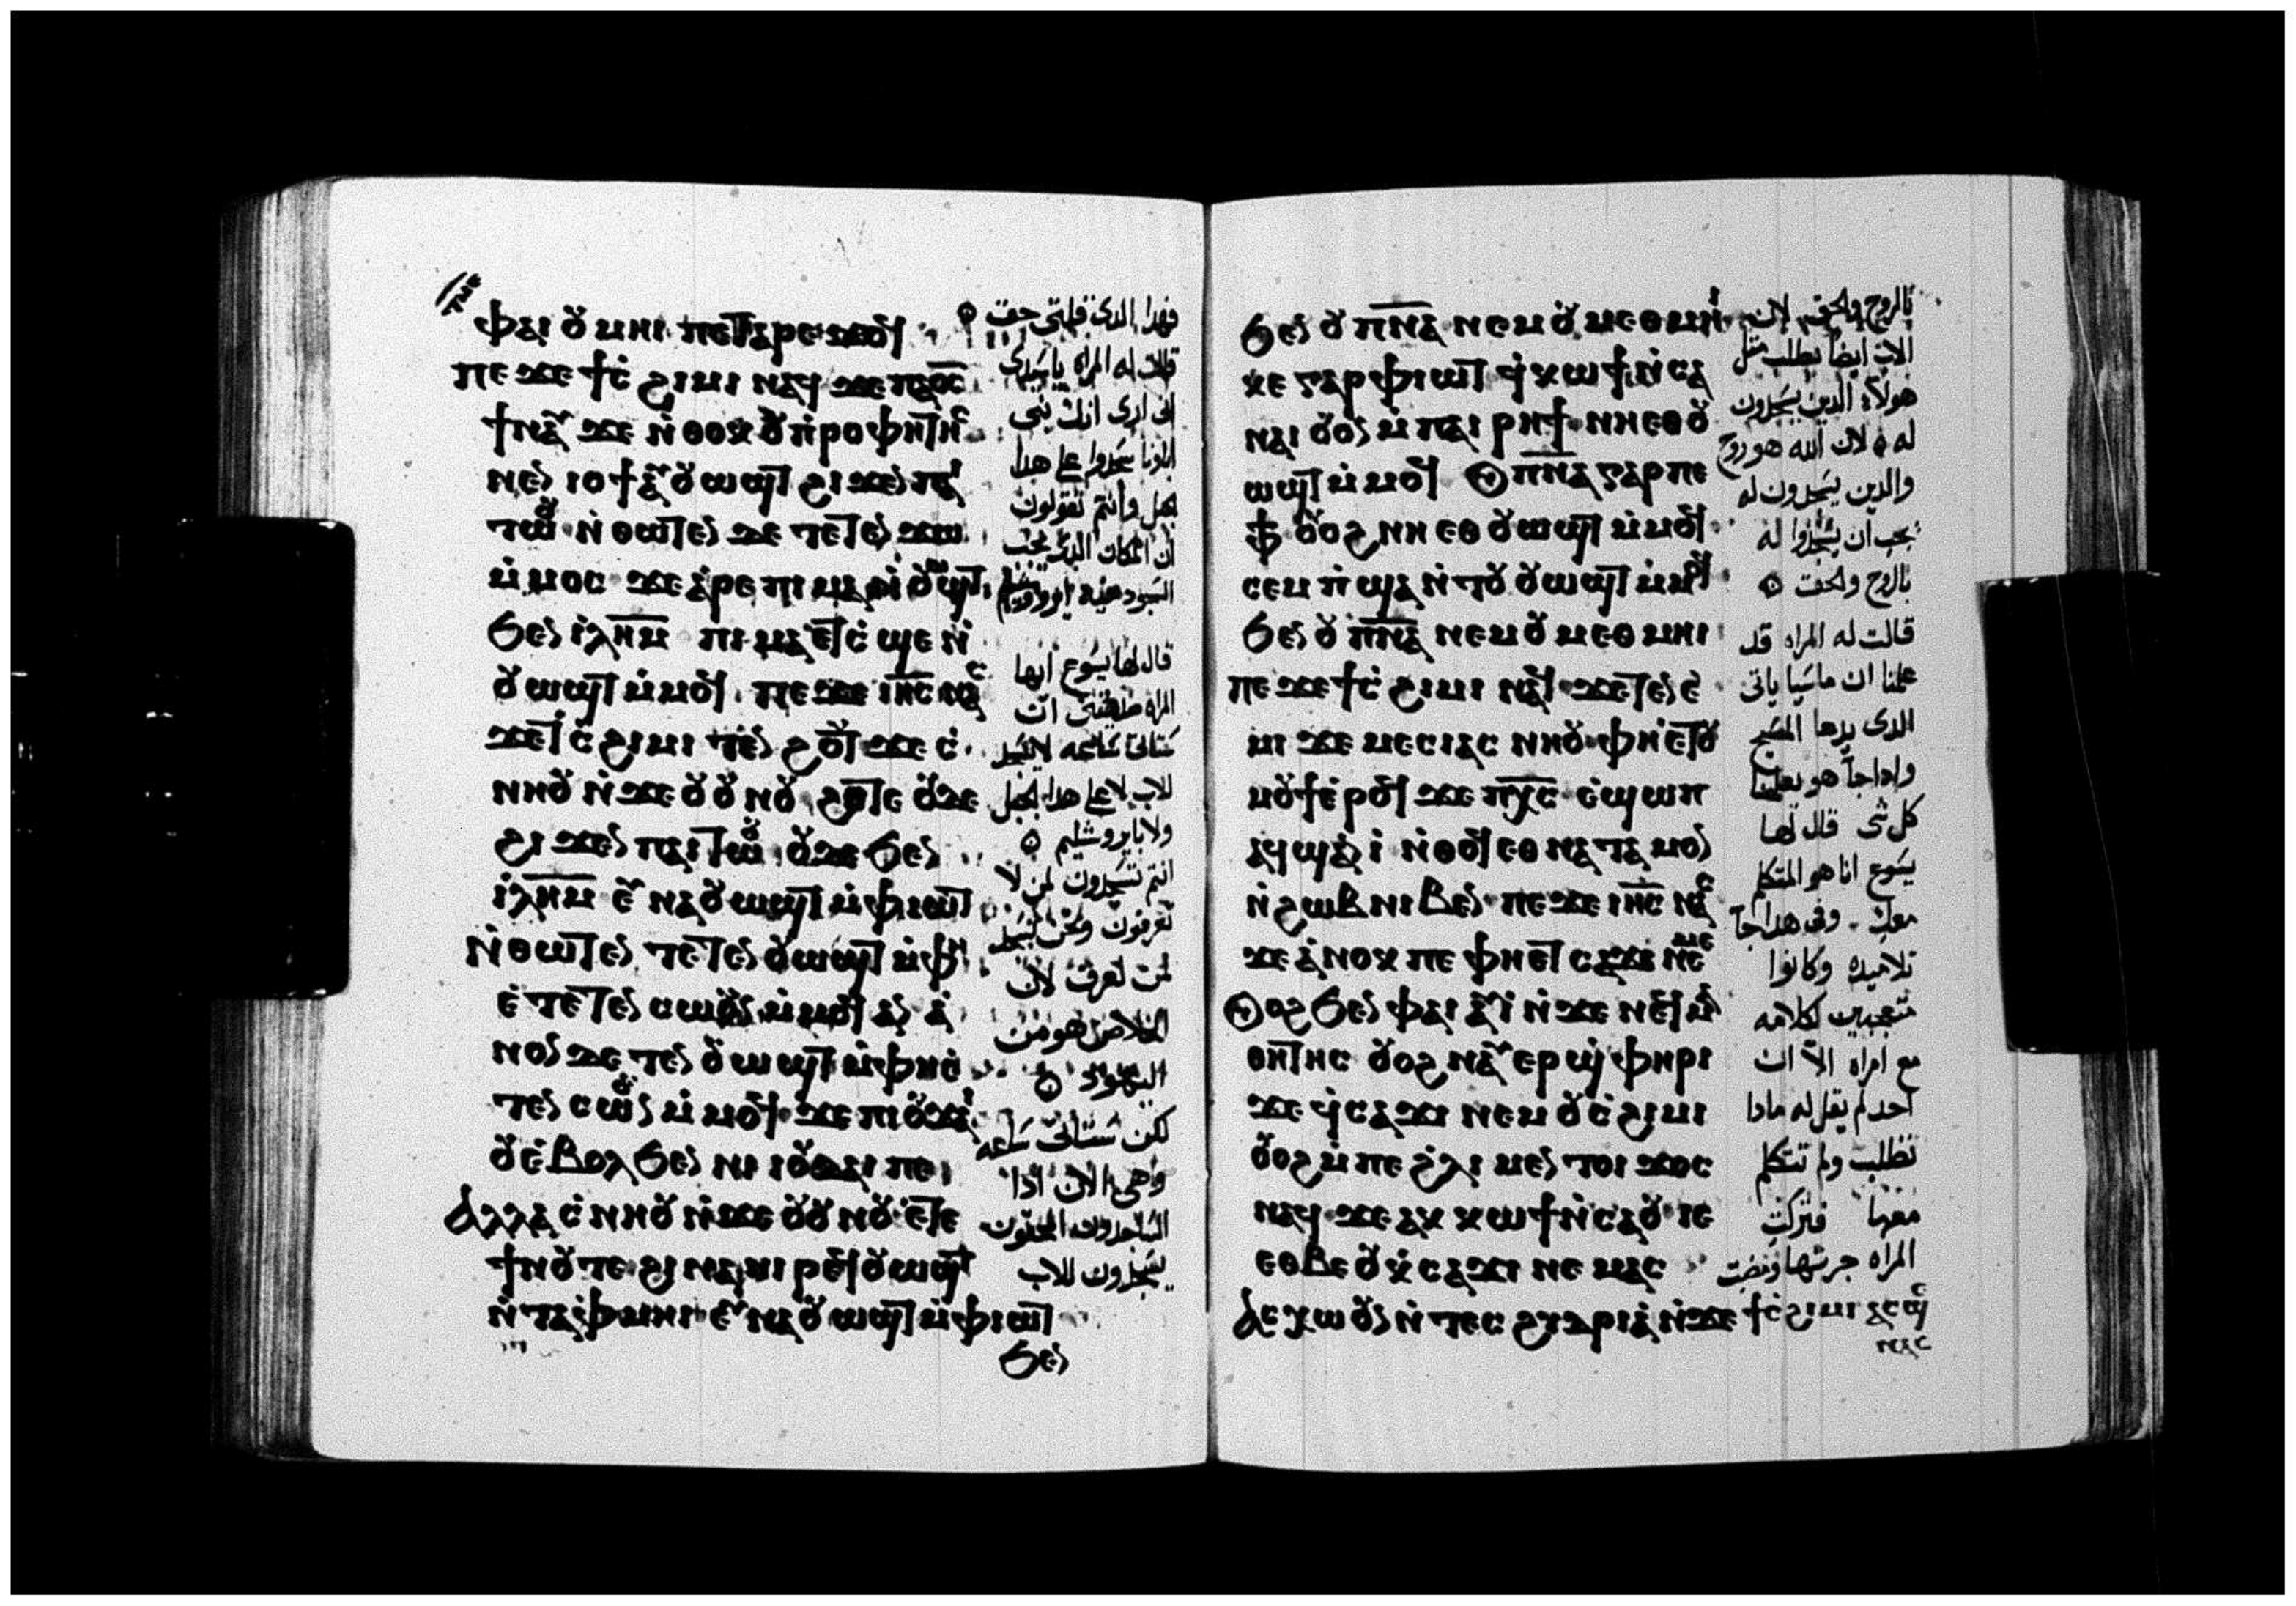 ⲫⲁⲓ ⲟⲩⲙⲏⲓ ⲡⲉⲧⲁⲣⲉϫⲟϥ
ⲡⲉϫⲉ ϯⲥ̇ϩⲓⲙⲓ ⲛⲁϥ ϫⲉ ⲡϭⲟⲓⲥ
ϯⲛⲁⲩ ϫⲉ ⲛ̇ⲑⲟⲕ ⲟⲩⲡ̇ⲣⲟⲫⲏⲧⲏⲥ
ⲛⲉⲛⲓⲟϯ ⲁⲩⲟⲩⲱϣⲧ ϩⲓϫⲉⲛ ⲡⲁⲓ
ⲧⲱⲟⲩ ⲛ̇ⲑⲱⲧⲉⲛ ϫⲉ ⲧⲉⲧⲉⲛϫⲱ
ⲙ̇ⲙⲟⲥ ϫⲉ ⲁ̇ⲣⲉ ⲡⲓⲙⲁⲛ̇ⲟⲩⲱϣⲧ
ϧⲉⲛ ⲓ̇ⲗⲏ̅ⲙ̅ ⲡⲓⲙⲁ ⲉ̇ⲧⲥ̇ϣⲉ ⲛ̇
ⲟⲩⲱϣⲧ ⲙ̇ⲙⲟϥ ⲡⲉϫⲉ ⲓⲏ̅ⲥ̅ ⲛⲁⲥ
ϫⲉ ⲧⲥ̇ϩⲓⲙⲓ ⲧⲉⲛϩⲟⲩⲧ ϫⲉ ⲥ̇
ⲛⲏⲟⲩ ⲛ̇ϫⲉ ⲟⲩⲟⲩⲛⲟⲩ ϩⲟⲧⲉ ⲟⲩⲇⲉ
ϩⲓϫⲉⲛ ⲡⲁⲓⲧⲱⲟⲩ ⲟⲩⲇⲉ ϧⲉⲛ
ⲓ̇ⲗⲏ̅ⲙ̅ ⲉⲩⲛⲁⲟⲩⲱϣⲧ ⲙ̇ⲫⲓⲱⲧ
ⲛ̇ⲑⲱⲧⲉⲛ ⲧⲉⲧⲉⲛⲟⲩⲱϣⲧ ⲙ̇ⲫⲏ
ⲉ̇ⲧⲉⲧⲉⲛⲥⲱⲟⲩⲛ ⲙ̇ⲙⲟϥ ⲁⲛ ⲁ̇
ⲛⲟⲛ ϫⲉ ⲧⲉⲛⲟⲩⲱϣⲧ ⲙ̇ⲫⲏⲉ̇
ⲧⲉⲛⲥⲱⲟⲩⲛ ⲙ̇ⲙⲟϥ ϫⲉ ⲡⲓⲟⲩϫⲁⲓ
ⲟⲩⲉ̇ⲃⲟⲗϧⲉⲛ ⲛⲓⲓⲟⲩⲇⲁⲓ ⲡⲉ
ⲁⲗⲗⲁ ⲥ̇ⲛⲏⲟⲩ ⲛ̇ϫⲉ ⲟⲩⲟⲩⲛⲟⲩ ⲉ̇ⲧⲉ
ϯⲛⲟⲩ ⲧⲉ ϩⲓⲛⲁ ⲛⲓⲣⲉϥⲟⲩⲱϣⲧ
ⲛ̇ⲧⲁⲫⲙⲏⲓ ⲉⲩⲛⲁⲟⲩⲱϣⲧ ⲙ̇ⲫⲓⲱⲧ
ϧⲉⲛ
فهدا الدى قلتى حق
قالت له المراه ياسيدى
انى ارى انك نبى
اباونا سجدوا على هدا
الجبل وانتم تقولون
ان المكان الدى يجب
السجود فيه ايروشليم
قال لها يسوع ايها
المراه صدقينى ان
ستاتى ساعه لا تسجد
للاب لا على هدا الجبل
ولا بايروشليم
انتم تسجدون لمن لا
تعرفون ونحن نسجد
لمن نعرف لان
الخلاص هو من
اليهود
لكن ستاتى ساعه
وهى الان اذا
الساجدون المحقون
يسجدون للاب
ϧⲉⲛ ⲟⲩⲡ̅ⲛ̅ⲁ̅ ⲛⲉⲙ ⲟⲩⲙⲉⲑⲙⲏⲓ
ⲕⲉ ⲅⲁⲣ ⲫⲓⲱⲧ ϥ̇ⲕⲱϯ ⲛ̇ⲥⲁ
ⲛⲁⲓ ⲟⲩⲟⲛ ⲙ̇ⲡⲁⲓⲣⲏϯ ⲛⲏⲉⲑⲟⲩ
ⲱϣⲧ ⲙ̇ⲙⲟϥ ⲟⲩⲡ̅ⲛ̅ⲁ̅ ⲅⲁⲣ ⲡⲉ
ⲫϯ ⲟⲩⲟϩ ⲛⲏ ⲉⲑⲟⲩⲱϣⲧ ⲙ̇ⲙⲟϥ
ⲥⲉⲙⲡ̇ϣⲁ ⲛ̇ⲧⲟⲩⲟⲩⲱϣⲧ ⲙ̇ⲙⲟϥ
ϧⲉⲛ ⲟⲩⲡ̅ⲛ̅ⲁ̅ ⲛⲉⲙ ⲟⲩⲙⲉⲑⲙⲏⲓ
ⲡⲉϫⲉ ϯⲥ̇ϩⲓⲙⲓ ⲛⲁϥ ϫⲉ ⲧⲉⲛⲉ̇
ⲙⲓ ϫⲉ ⲙⲉⲥⲓⲁⲥ ⲛⲏⲟⲩ ⲫⲏⲉ̇ⲧⲟⲩ
ⲙⲟⲩϯ ⲉ̇ⲣⲟϥ ϫⲉ ⲡⲭ̅ⲥ̅ ⲉ̇ϣⲱⲡ
ⲁϥϣⲁⲛⲓ̇ ⲛ̇ⲑⲟϥ ⲉⲑⲛⲁⲧⲁⲙⲟⲛ
ⲛ̇ϩⲱⲃ ⲛⲓⲃⲉⲛ ⲡⲉϫⲉ ⲓⲏ̅ⲥ̅ ⲛⲁⲥ
ϫⲉ ⲁ̇ⲛⲟⲕ ⲡⲉ ⲫⲏⲉⲧⲥⲁϫⲓ ⲛⲉⲙⲉ
ⲟⲩⲟϩ ϧⲉⲛ ⲫⲁⲓ ⲁⲩⲓ̇ ⲛ̇ϫⲉ ⲛⲉϥⲙⲁ
ⲑⲏⲧⲏⲥ ⲟⲩⲟϩ ⲛⲁⲩⲉⲣϣ̇ⲫⲏⲣⲓ
ϫⲉ ϥ̇ⲥⲁϫⲓ ⲛⲉⲙ ⲟⲩⲥ̇ϩⲓⲙⲓ
ⲟⲩⲟϩ ⲙ̇ⲡⲉ ϩ̇ⲗⲓ ⲙⲉⲛⲧⲟⲓ ϫⲟⲥ
ⲛⲁϥ ϫⲉ ⲁⲕⲕⲱϯ ⲛ̇ⲥⲁ ⲟⲩ ⲓⲉ
ⲉⲑⲃⲉ ⲟⲩ ⲕ̇ⲥⲁϫⲓ ⲛⲉⲙⲁⲥ
ⲁⲥⲭⲱ ⲟⲩⲛ ⲛ̇ⲧⲉⲥϩⲩⲇⲣⲓⲁ̇ ⲛ̇ϫⲉ ϯⲥ̇ϩⲓⲙⲓ ⲁⲥϣⲉ
ⲛⲁⲥ
بالروح والحق لان
الاب ايضا يطلب مثل
هولاء الدين يسجدون
له لان الله هو روح
والدين يسجدون له
يجب ان يسجدوا له
بالروح والحق
قالت له المراه قد
علمنا ان ماسيا ياتى
الدى يدعا المسيح
وادا جا هو يعلمنا
كل شى قال لها
يسوع انا هو المتكلم
معك وفى هدا جا
تلاميده وكانوا
متعجبين لكلامه
مع امراه الا ان
احد لم يقل له مادا
تطلب ولم تتكلم
معها فتركت
المراه جرتها ومضت